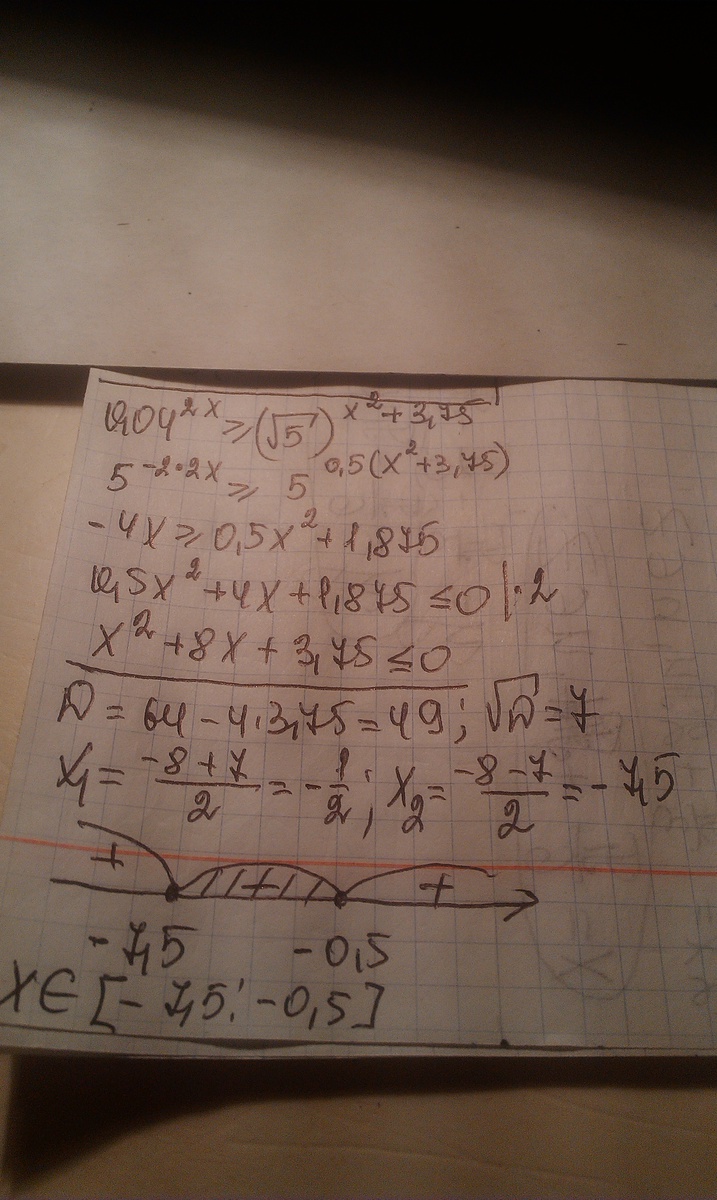 0,04^{2x} ≥ (√5)^{x²+3,75}
5^{-2·2x} ≥ 5^{0,5(x²+3,75)}
-4x ≥ 0,5x²+1,875
0,5x²+4x+1,875 ≤ 0 |·2
x²+8x+3,75 ≤ 0
D = 64-4·3,75 = 49; √D = 7
x₁ = \frac{-8+7}{2} = -\frac{1}{2}; x₂ = \frac{-8-7}{2} = -7,5
+ + +
-7,5 -0,5
x ∈ [-7,5; -0,5]